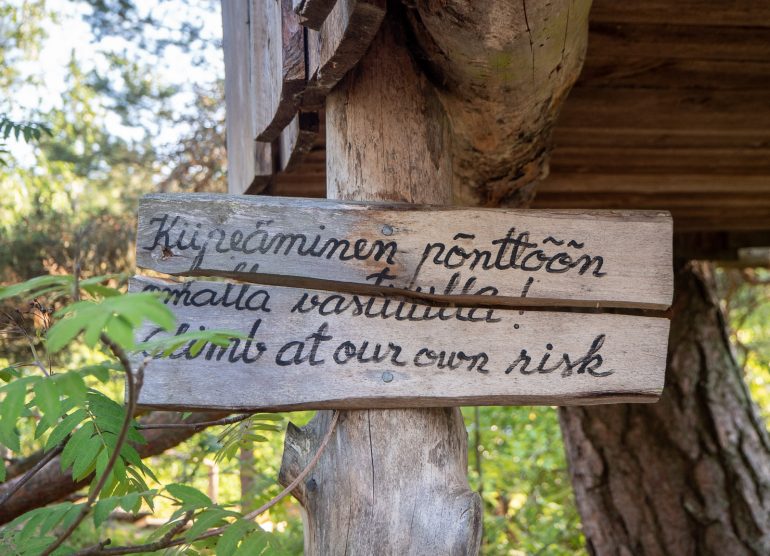 Kiipeäminen põnttõõn
omalla vastuulla!
Climb at our own risk